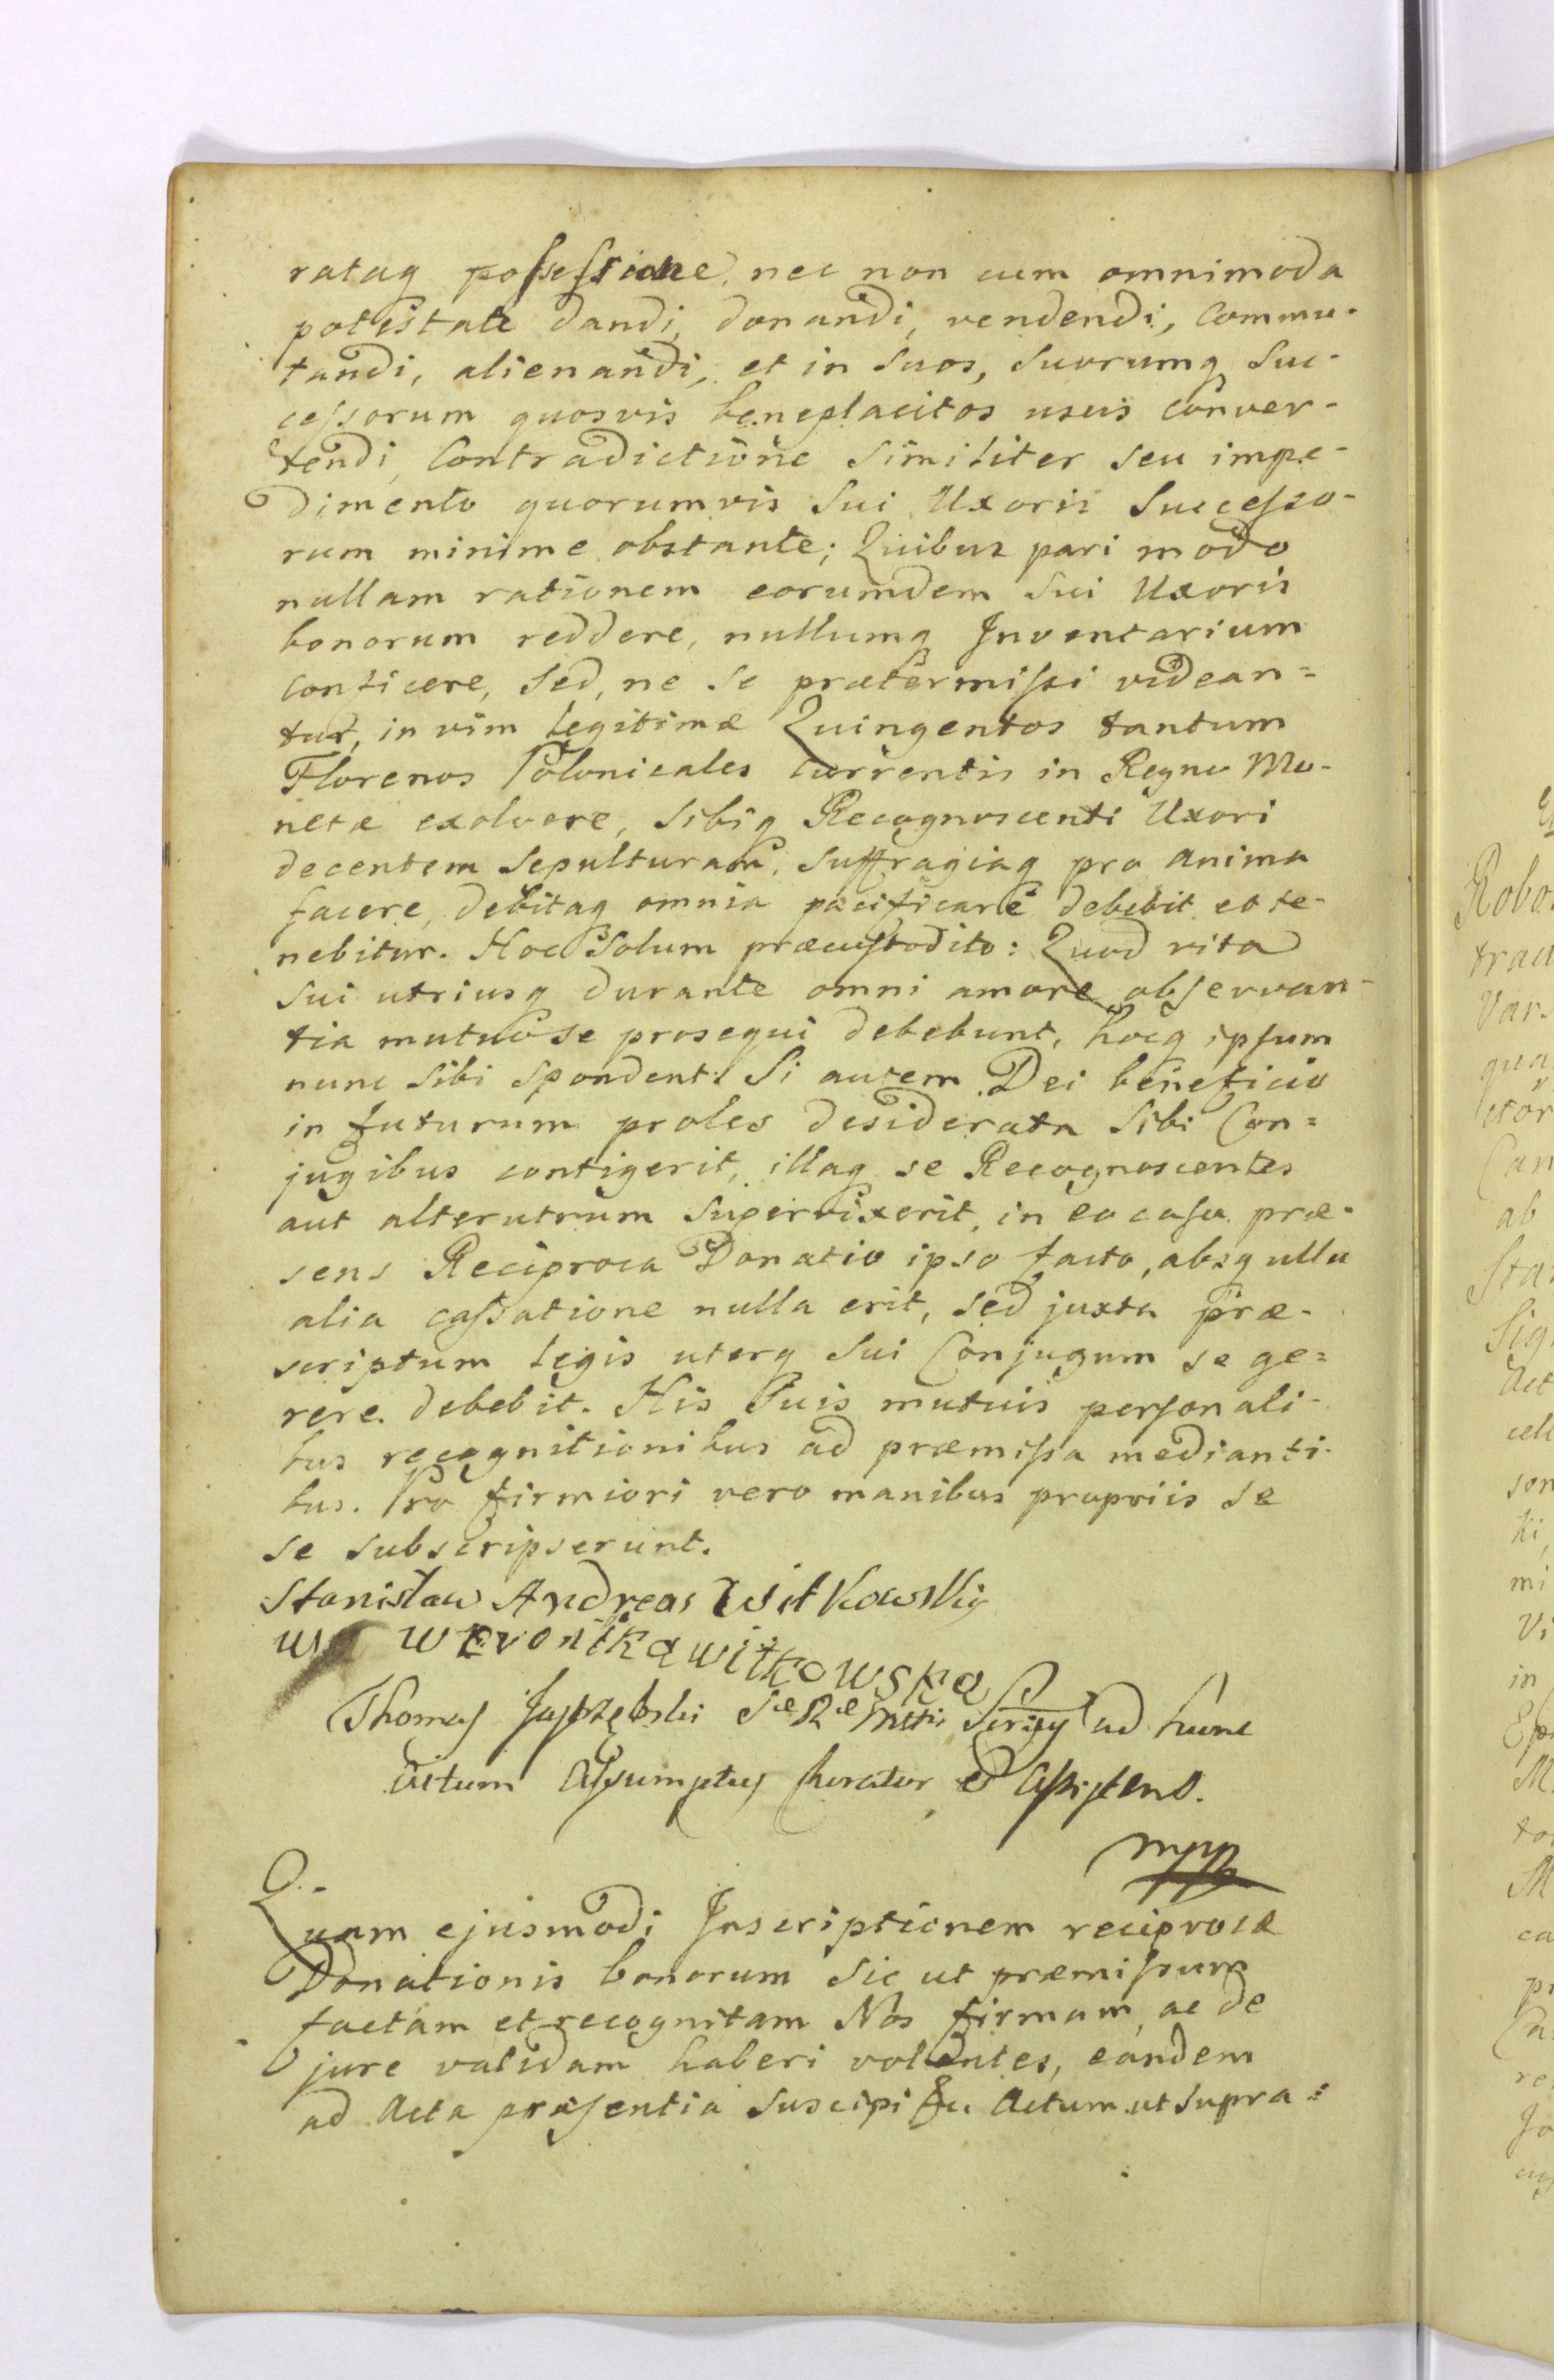 rataq possessione, nec non cum omnimoda
potestate dandi, donandi, vendendi, Commu-
tandi, alienandi, et in Suos, Suorumq Suc-
cessorum quosvis beneplacitos usus conver-
tendi, Contradictione Similiter seu impe-
dimento quorumvis Sui Uxoris Successo-
rum minime obstante; Quibus pari modo
nullam rationem eorumdem Sui Uxoris
bonorum reddere, nullumq Inventarium
conficere, Sed, ne Se prætermissi videan=
tur, in vim legitimæ Quingentos tantum
Florenos Polonicales currentis in Regno Mo-
netæ exolvere, Sibiq Recognoscenti Uxori
decentem Sepulturam, Suffragiaq pro anima
facere, debitaq omnia pacificare debebit et te-
nebitur. Hoc Solum præcustodito: Quod vita
Sui utriusq durante omni amore observan-
tia mutuo se prosequi debebunt, hocq ipsum
nunc Sibi Spondent. Si autem Dei beneficio
in futurum proles desiderata Sibi Con=
jugibus contigerit, illaq se Recognoscentes
aut alterutrum Supervixerit, in eo casu præ-
sens Reciproca Donatio ipso facto, absq ulla
alia cassatione nulla erit, sed juxta præ-
scriptum legis uterq Sui Conjugum se ge=
rere debebit. His Suis mutuis personali-
bus recognitionibus ad præmissa medianti-
bus. Pro firmiori vero manibus propriis Se
se subscripserunt.
Stanisław Andreas Witkowski
Weronika Witkowska
Thomas Jastrzębski Sæ Ræ Mttis ad hunc
actum Assumptus Curator et Assistens.
mpp
Quam ejusmodi Inscriptionem reciprocæ
Donationis bonorum Sic ut præmissum
factam et recognitam Nos firmam, ac de
jure validam haberi volentes, eandem
ad Acta præsentia suscipi Actum ut Supra